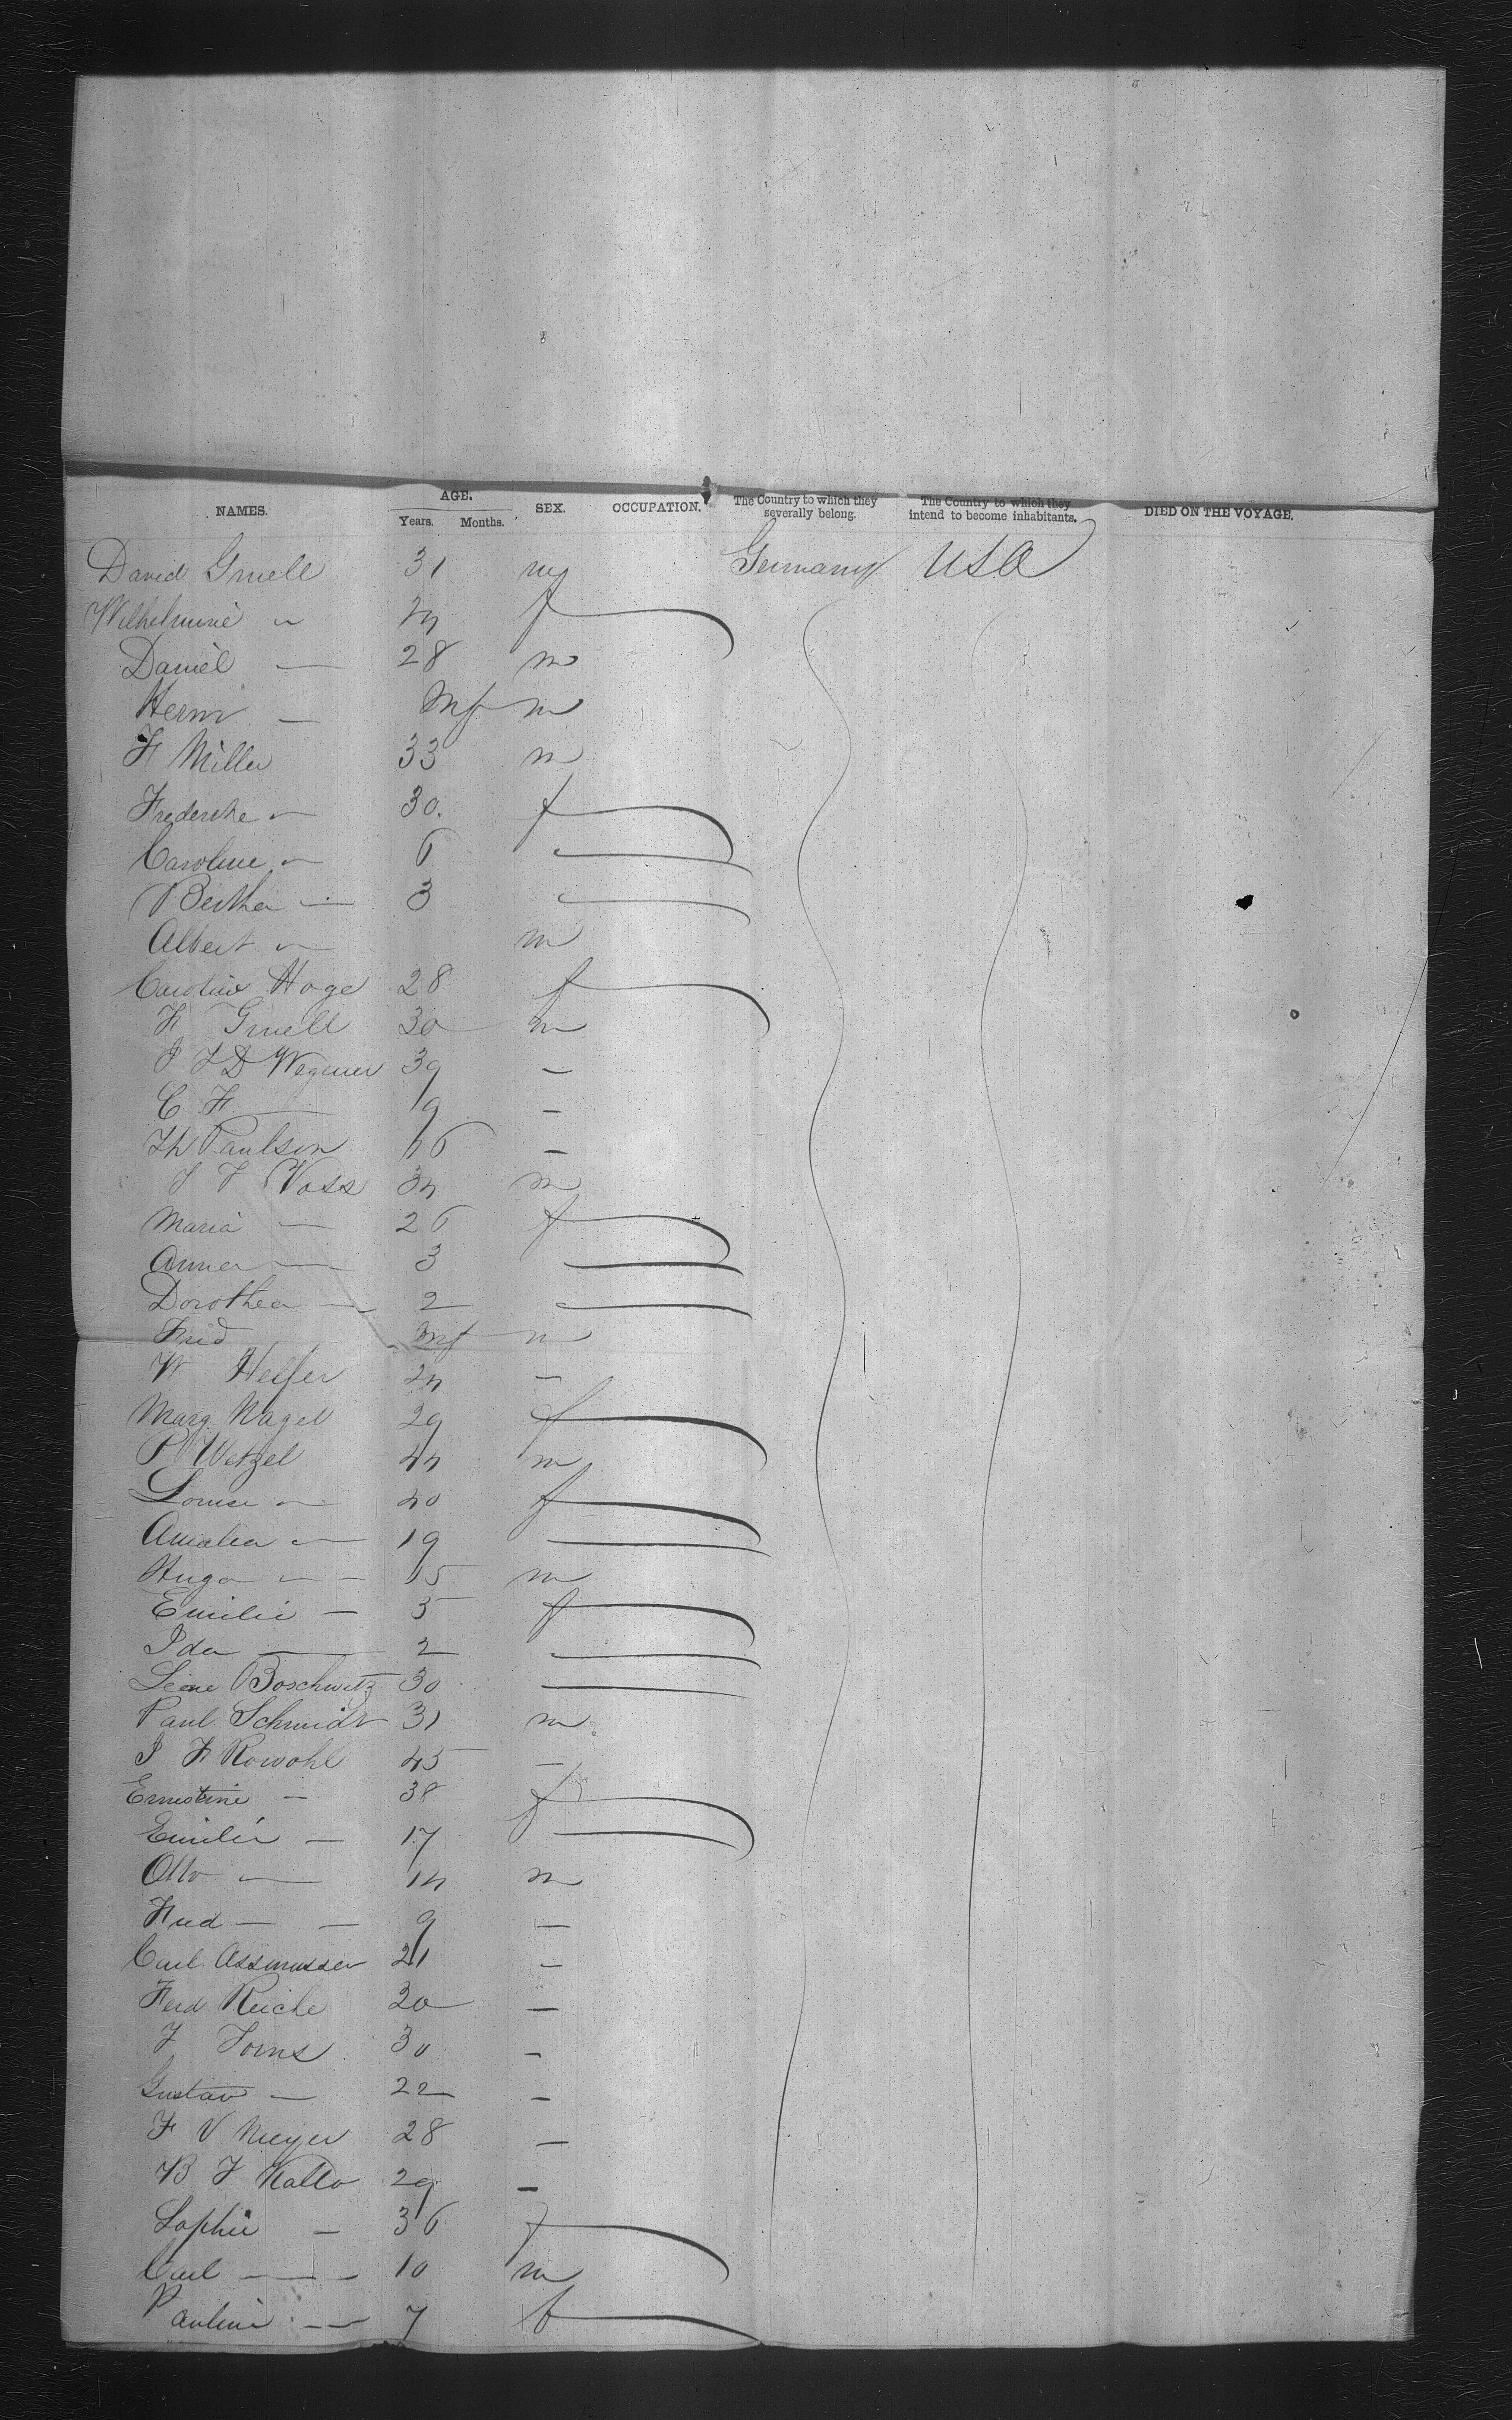 NAMES. AGE. Years. Months. SEX. OCCUPATION. The Country to which they severally belong. The Country to which they intend to become inhabitants. DIED ON THE VOYAGE.
David Gruell 31 m Germany USA
Wilhelmine " 24 f
Daniel — 28 m
Herm — Inf m
F Miller 33 m
Frederike " 30. f
Caroline " 6
Bertha — 3
Albert " m
Caroline Hoge 28 f
F Gruell 30 m
J D Wegener 39 —
C F — 19 —
Th Paulson 16 —
J J Voss 34 m
Maria — 26 f
Anna — 3
Dorothea — 2
Fried Inf m
W Helfer 24 —
Marg Nagel 29 f
P Wetzel 44 m
Louise " 40 f
Amalea " 19
Hugo " — 15 m
Emilie — 5 f
Ida — 2
Liene Boschwitz 30
Paul Schmidt 31 m
J F Rowohl 45 —
Ernestine — 38 f
Emilie — 17
Otto — 14 m
Fried — — 9 —
Carl Assmussen 21 —
Ferd Reiche 30 —
J Jorns 30 —
Gustav — 22 —
F V Meyer 28 —
B J Kallo 29 —
Sophie — 36 f
Carl — — 10 m
Pauline — — 7 f